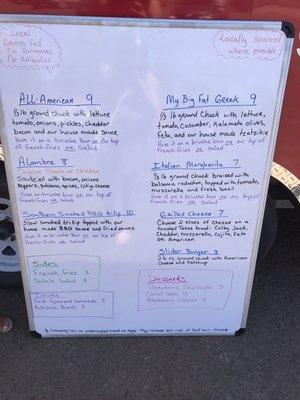 Local
Grass Fed
No Hormones
No Antibiotics
Locally sourced
where possible
All-American 9
1/3 lb ground chuck with lettuce
tomato, onions, pickles, cheddar
bacon and our house made sauce
Have it on a brioche bun or on top
of french fries or salad
Alambre 8
Choose Steak or Chicken
Sauteed with bacon, onions
peppers, poblano, spices, cotija cheese
french fries or salad
Southern Smoked BBQ tritip 10
Slow smoked tritip topped with our
home made BBQ sauce and fried onions
Have it on a brioche bun or on top of
french fries or salad
Sides
French Fries 3
Potato Salad 3
Drinks
Fresh Squeezed Lemonade 3
Hibiscus Punch 3
My Big Fat Greek 9
1/3 lb ground chuck with lettuce,
tomato, Cucumber, Kalamata olives,
Feta, and our house made tzatzikie
Have it on a brioche bun or on top
of french fries or salad
Italian Margherita 7
1/3 lb ground chuck braised with
balsamic reduction, topped with tomato,
mozzarella and fresh basil
of french fries or salad
Grilled Cheese 7
Choose 2 slices of cheese on a
toasted Texas toast: Colby Jack,
Cheddar, mozzarella, Cojita, Feta
or American
Slider Burger 3
2 oz ground chuck with American
cheese and ketchup
Desserts
Strawberry Shortcake 5
Carrot Cake 4
Blackberry Cobbler 4
* Consuming raw or undercooked meat or eggs may increase your risk of food born illness